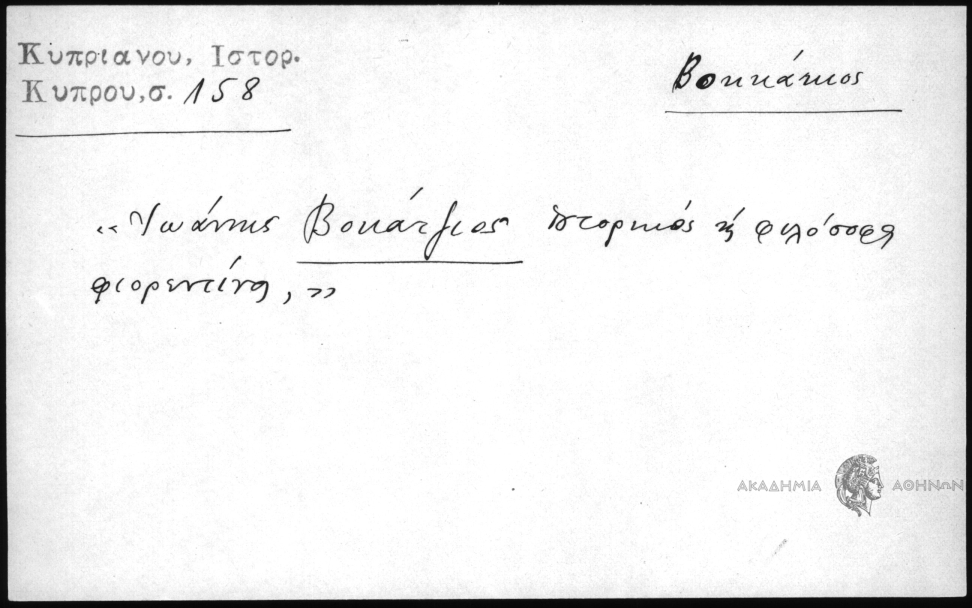 Κυπριανου, Ιστορ.
Κυπρου, σ. 158
Βοκκάκιος
«Ἰωάννης Βοκάτζιος ἱστορικός ϗ φιλόσοφȣ
φιορεντίνȣ, »
ΑΚΑΔΗΜΙΑ ΑΘΗΝΩΝ